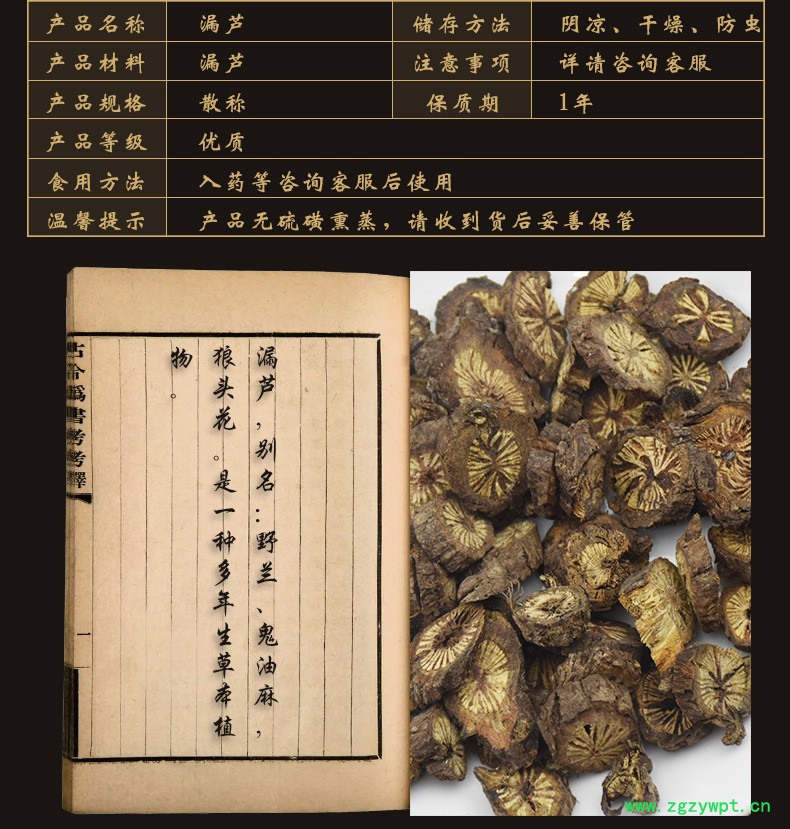 产品名称 漏芦 储存方法 阴凉、干燥、防虫
产品材料 漏芦 注意事项 详请咨询客服
产品规格 散称 保质期 1年
产品等级 优质
食用方法 入药等咨询客服后使用
温馨提示 产品无硫磺熏蒸，请收到货后妥善保管
漏芦，别名：野兰、鬼油麻，
狼头花。是一种多年生草本植
物。
古今伪書考考釋
一
www.zgzywpt.cn